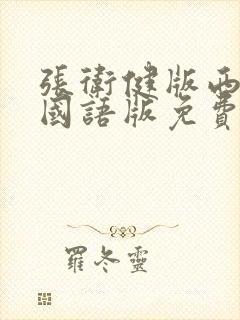 張衛健版西
國語版免費
羅冬靈